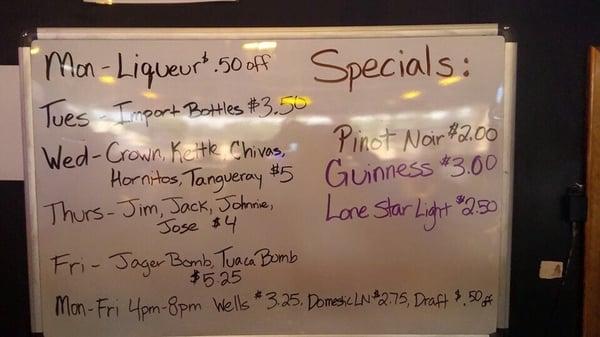 Mon - Liqueur $.50 off
Specials:
Tues - Import Bottles $3.50
Wed - Crown, Kettle, Chivas,
Hornitos, Tangueray $5
Thurs - Jim, Jack, Johnnie,
Jose $4
Fri - Jager Bomb, Tuaca Bomb
$5.25
Pinot Noir $2.00
Guinness $3.00
Lone Star Light $2.50
Mon-Fri 4pm-8pm Wells $3.25, Domestic LN $2.75, Draft $.50 off